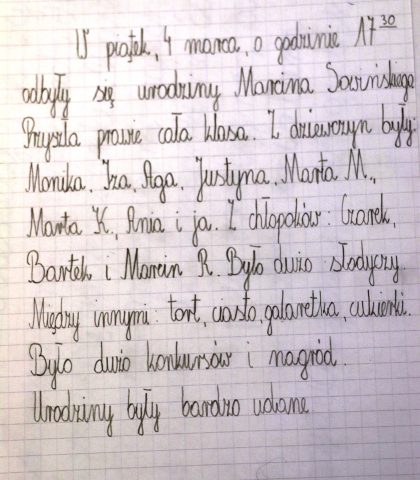 W piątek, 4 marca, o godzinie 17³⁰
odbyły się urodziny Marcina Sowińskiego
Przyszła prawie cała klasa. Z dziewczyn były:
Monika, Iza, Aga, Justyna, Marta M.,
Marta K., Ania i ja. Z chłopaków: Czarek,
Bartek i Marcin R. Było dużo słodyczy.
Między innymi: tort, ciasto, galaretka, cukierki.
Było dużo konkursów i nagród.
Urodziny były bardzo udane.